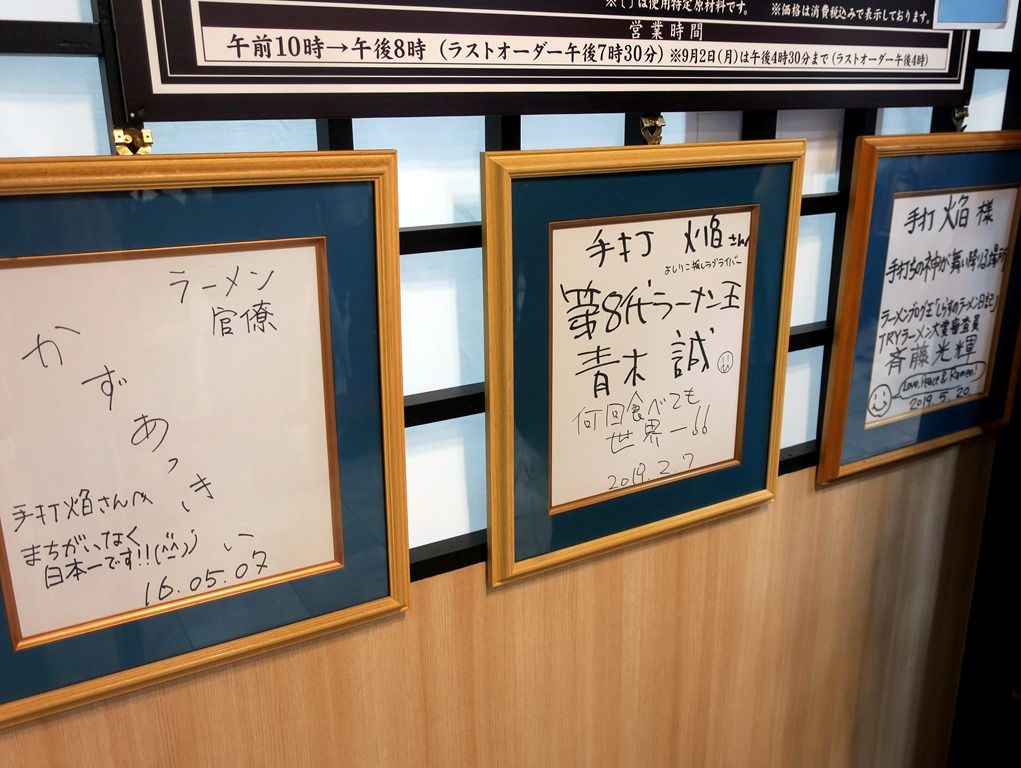 ※( )は使用特定原材料です。 ※価格は消費税込みで表示しております。
営業時間
午前10時→午後8時 (ラストオーダー午後7時30分) ※9月2日(月)は午後4時30分まで(ラストオーダー午後4時)
ラーメン
官僚
かずあっきぃ
手打焔さん江
まちがいなく
日本一です!!(^^)
16.05.07
手打 焔さん
よしりこ推しラブライバー
第8代ラーメン王
青木 誠
何回食べても
世界一!!
2019.2.7
手打 焔 様
手打ちの神が舞い降りる場所
ラーメンブログ王「しらすのラーメン日記」
TRYラーメン大賞審査員
斉藤光輝
Love, Peace & Ramen!
2019.5.20